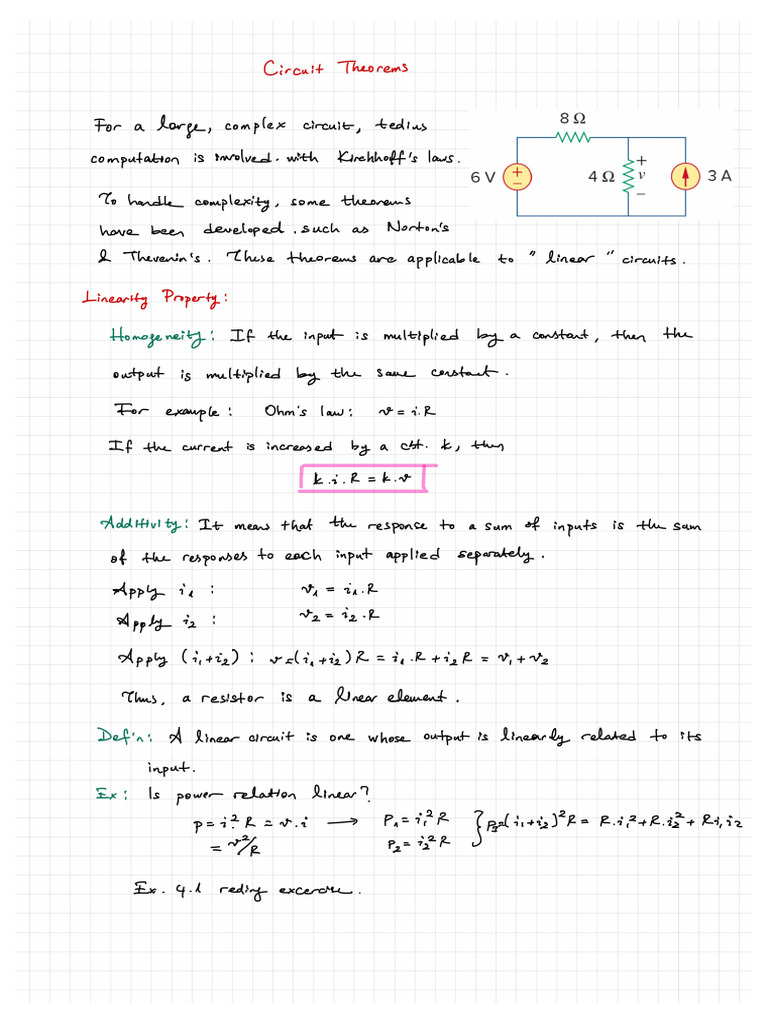 Circuit Theorems
For a large, complex circuit, tedius
computation is involved. with Kirchhoff's laws.
8 Ω
6 V
+
−
4 Ω
+
v
−
3 A
To handle complexity, some theorems
have been developed. such as Norton's
& Thevenin's. These theorems are applicable to "linear" circuits.
Linearity Property:
Homogeneity: If the input is multiplied by a constant, then the
output is multiplied by the same constant.
For example: Ohm's law: v = i.R
If the current is increased by a cst. k, then
k.i.R = k.v
Additivity: It means that the response to a sum of inputs is the sum
of the responses to each input applied separately.
Apply i₁ : v₁ = i₁.R
Apply i₂ : v₂ = i₂.R
Apply (i₁+i₂) : v=(i₁+i₂)R = i₁.R+i₂R = v₁+v₂
Thus, a resistor is a linear element.
Def'n: A linear circuit is one whose output is linearly related to its
input.
Ex: Is power relation linear?
p=i².R = v.i → P₁=i₁²R } P₃=(i₁+i₂)²R= R.i₁²+R.i₂²+Ri₁i₂
= v²/R P₂=i₂²R
Ex. 4.1